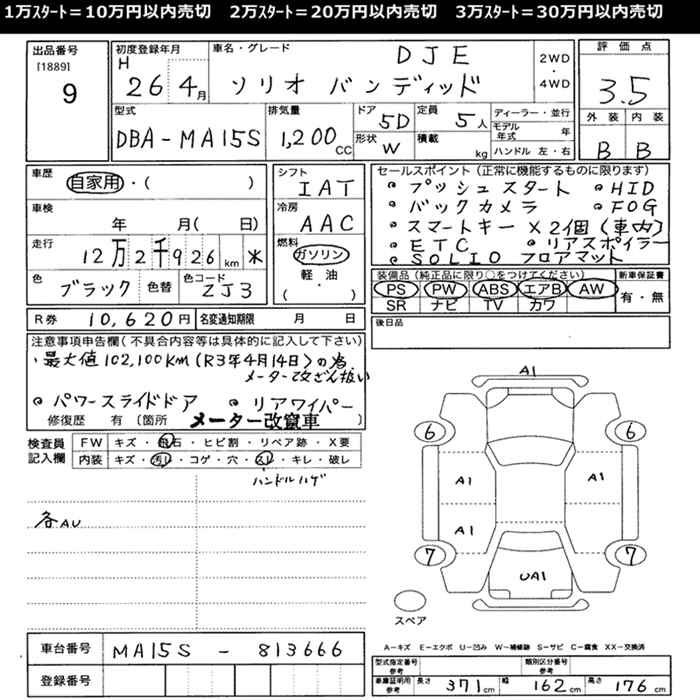 1万ｽﾀｰﾄ＝10万円以内売切　2万ｽﾀｰﾄ＝20万円以内売切　3万ｽﾀｰﾄ＝30万円以内売切
出品番号
[1889]
9
初度登録年月
H
26 4月
車名・グレード
DJE
ソリオ バンディッド
2WD
・
4WD
評価点
3.5
外装 内装
B B
型式
DBA-MA15S
排気量
1,200 CC
ドア
5D
形状
W
定員
5人
積載
kg
ディーラー・並行
モデル年式 年
ハンドル 左・右
車歴
自家用・( )
車検
年 月( 日)
走行
12万2千926km 米
色
ブラック
色替
色コード
ZJ3
シフト
IAT
冷房
AAC
燃料
ガソリン
軽・油
( )
セールスポイント(正常に機能するものに限ります)
・プッシュスタート ・HID
・バックカメラ ・FOG
・スマートキー×2個(車内)
・ETC ・リアスポイラー
・SOLIO フロアマット
装備品(純正品に限り○をつけてください)
PS PW ABS エアB AW
SR ナビ TV カワ
新車保証書
有・無
R券 10,620円
名変通知期限 月 日
後日品
注意事項申告欄(不具合内容等は具体的に記入して下さい)
・最大値102,100KM(R3年4月14日)の為
メーター改ざん扱い
・パワースライドドア ・リアワイパー
修復歴 有〔箇所 メーター改竄車 〕
検査員
記入欄
FW キズ・飛石・ヒビ割・リペア跡・X要
内装 キズ・汚れ・コゲ・穴・スレ・キレ・破レ
ハンドルハゲ
各AU
A1
6 6
A1 A1
A1
7 7
UA1
スペア
車台番号 MA15S - 813666
登録番号
A－キズ E－エクボ U－凹み W－補修跡 S－サビ C－腐食 XX－交換済
型式指定番号
参考
類別区分番号
参考
車庫証明用
参考
長さ 371cm 幅 162cm 高さ 176cm